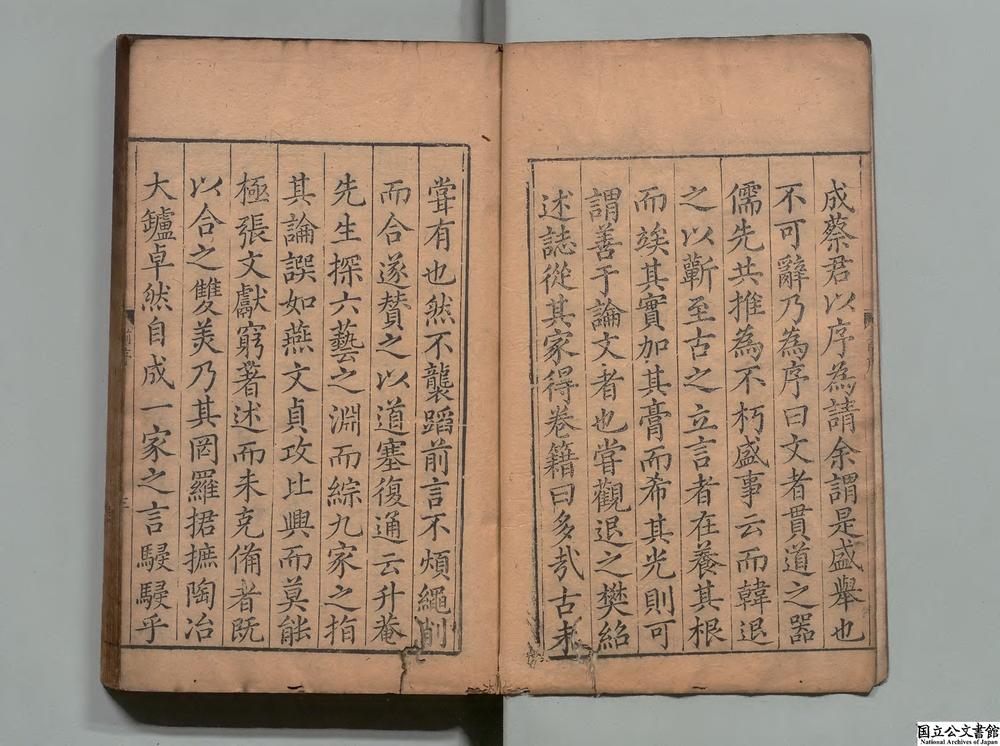 成蔡君以序為請余謂是盛舉也
不可辭乃為序曰文者貫道之器
儒先共推為不朽盛事云而韓退
之以蘄至古之立言者在養其根
而竢其實加其膏而希其光則可
謂善于論文者也嘗觀退之樊紹
述誌從其家得卷籍曰多哉古未
甞有也然不襲蹈前言不煩繩削
而合遂賛之以道塞復通云升菴
先生探六藝之淵而綜九家之指
其論譔如燕文貞攻比興而莫能
極張文獻窮著述而未克備者旣
以合之雙美乃其罔羅捃摭陶冶
大鑪卓然自成一家之言駸駸乎
国立公文書館
National Archives of Japan